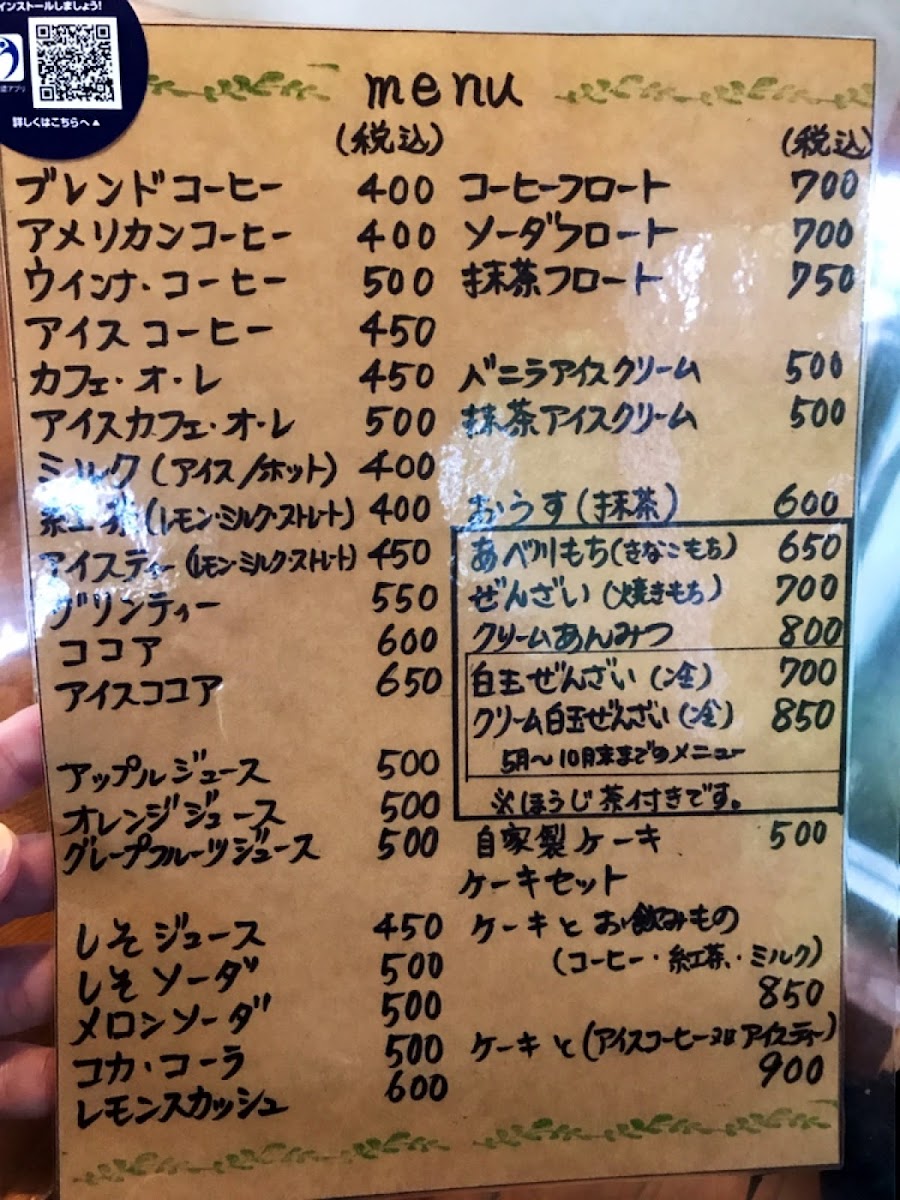 インストールしましょう!
詳しくはこちらへ▲
menu
(税込)
ブレンドコーヒー 400
アメリカンコーヒー 400
ウインナ・コーヒー 500
アイスコーヒー 450
カフェ・オ・レ 450
アイスカフェ・オ・レ 500
ミルク(アイス/ホット) 400
紅茶(レモン・ミルク・ストレート) 400
アイスティー(レモン・ミルク・ストレート) 450
グリンティー 550
ココア 600
アイスココア 650
アップルジュース 500
オレンジジュース 500
グレープフルーツジュース 500
しそジュース 450
しそソーダ 500
メロンソーダ 500
コカ・コーラ 500
レモンスカッシュ 600
(税込)
コーヒーフロート 700
ソーダフロート 700
抹茶フロート 750
バニラアイスクリーム 500
抹茶アイスクリーム 500
おうす(抹茶) 600
あべ川もち(きなこもち) 650
ぜんざい(焼きもち) 700
クリームあんみつ 800
白玉ぜんざい(冷) 700
クリーム白玉ぜんざい(冷) 850
5月〜10月末までのメニュー
※ほうじ茶付きです。
自家製ケーキ 500
ケーキセット
ケーキとお飲みもの
(コーヒー・紅茶・ミルク)
850
ケーキと(アイスコーヒー又はアイスティー)
900